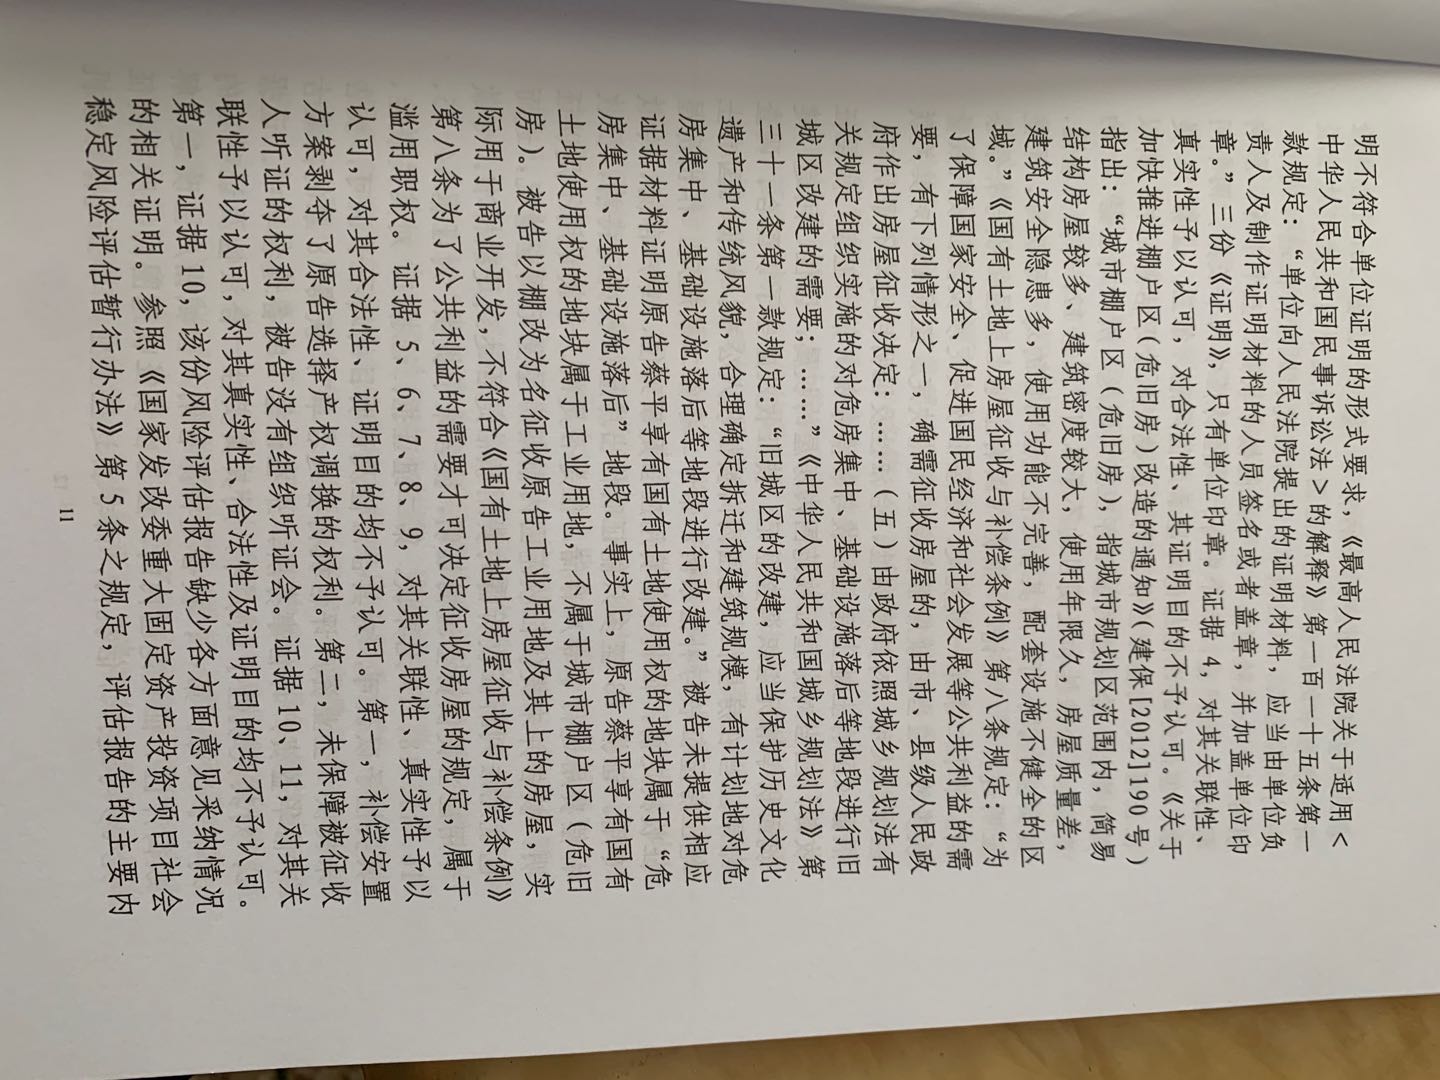 明不符合单位证明的形式要求，《最高人民法院关于适用<
中华人民共和国民事诉讼法>的解释》第一百一十五条第一
款规定：“单位向人民法院提出的证明材料，应当由单位负
责人及制作证明材料的人员签名或者盖章，并加盖单位印
章。”三份《证明》，只有单位印章。证据 4，对其关联性、
真实性予以认可，对合法性、其证明目的不予认可。《关于
加快推进棚户区（危旧房）改造的通知》（建保[2012]190 号）
指出：“城市棚户区（危旧房），指城市规划区范围内，简易
结构房屋较多、建筑密度较大，使用年限久，房屋质量差，
建筑安全隐患多，使用功能不完善，配套设施不健全的区
域。”《国有土地上房屋征收与补偿条例》第八条规定：“为
了保障国家安全、促进国民经济和社会发展等公共利益的需
要，有下列情形之一，确需征收房屋的，由市、县级人民政
府作出房屋征收决定：……（五）由政府依照城乡规划法有
关规定组织实施的对危房集中、基础设施落后等地段进行旧
城区改建的需要；……”《中华人民共和国城乡规划法》第
三十一条第一款规定：“旧城区的改建，应当保护历史文化
遗产和传统风貌，合理确定拆迁和建筑规模，有计划地对危
房集中、基础设施落后等地段进行改建。”被告未提供相应
证据材料证明原告蔡平享有国有土地使用权的地块属于“危
房集中、基础设施落后”地段。事实上，原告蔡平享有国有
土地使用权的地块属于工业用地，不属于城市棚户区（危旧
房）。被告以棚改为名征收原告工业用地及其上的房屋，实
际用于商业开发，不符合《国有土地上房屋征收与补偿条例》
第八条为了公共利益的需要才可决定征收房屋的规定，属于
滥用职权。证据 5、6、7、8、9，对其关联性、真实性予以
认可，对其合法性、证明目的均不予认可。第一，补偿安置
方案剥夺了原告选择产权调换的权利。第二，未保障被征收
人听证的权利，被告没有组织听证会。证据 10、11，对其关
联性予以认可，对其真实性、合法性及证明目的均不予认可。
第一，证据 10，该份风险评估报告缺少各方面意见采纳情况
的相关证明。参照《国家发改委重大固定资产投资项目社会
稳定风险评估暂行办法》第 5 条之规定，评估报告的主要内
11